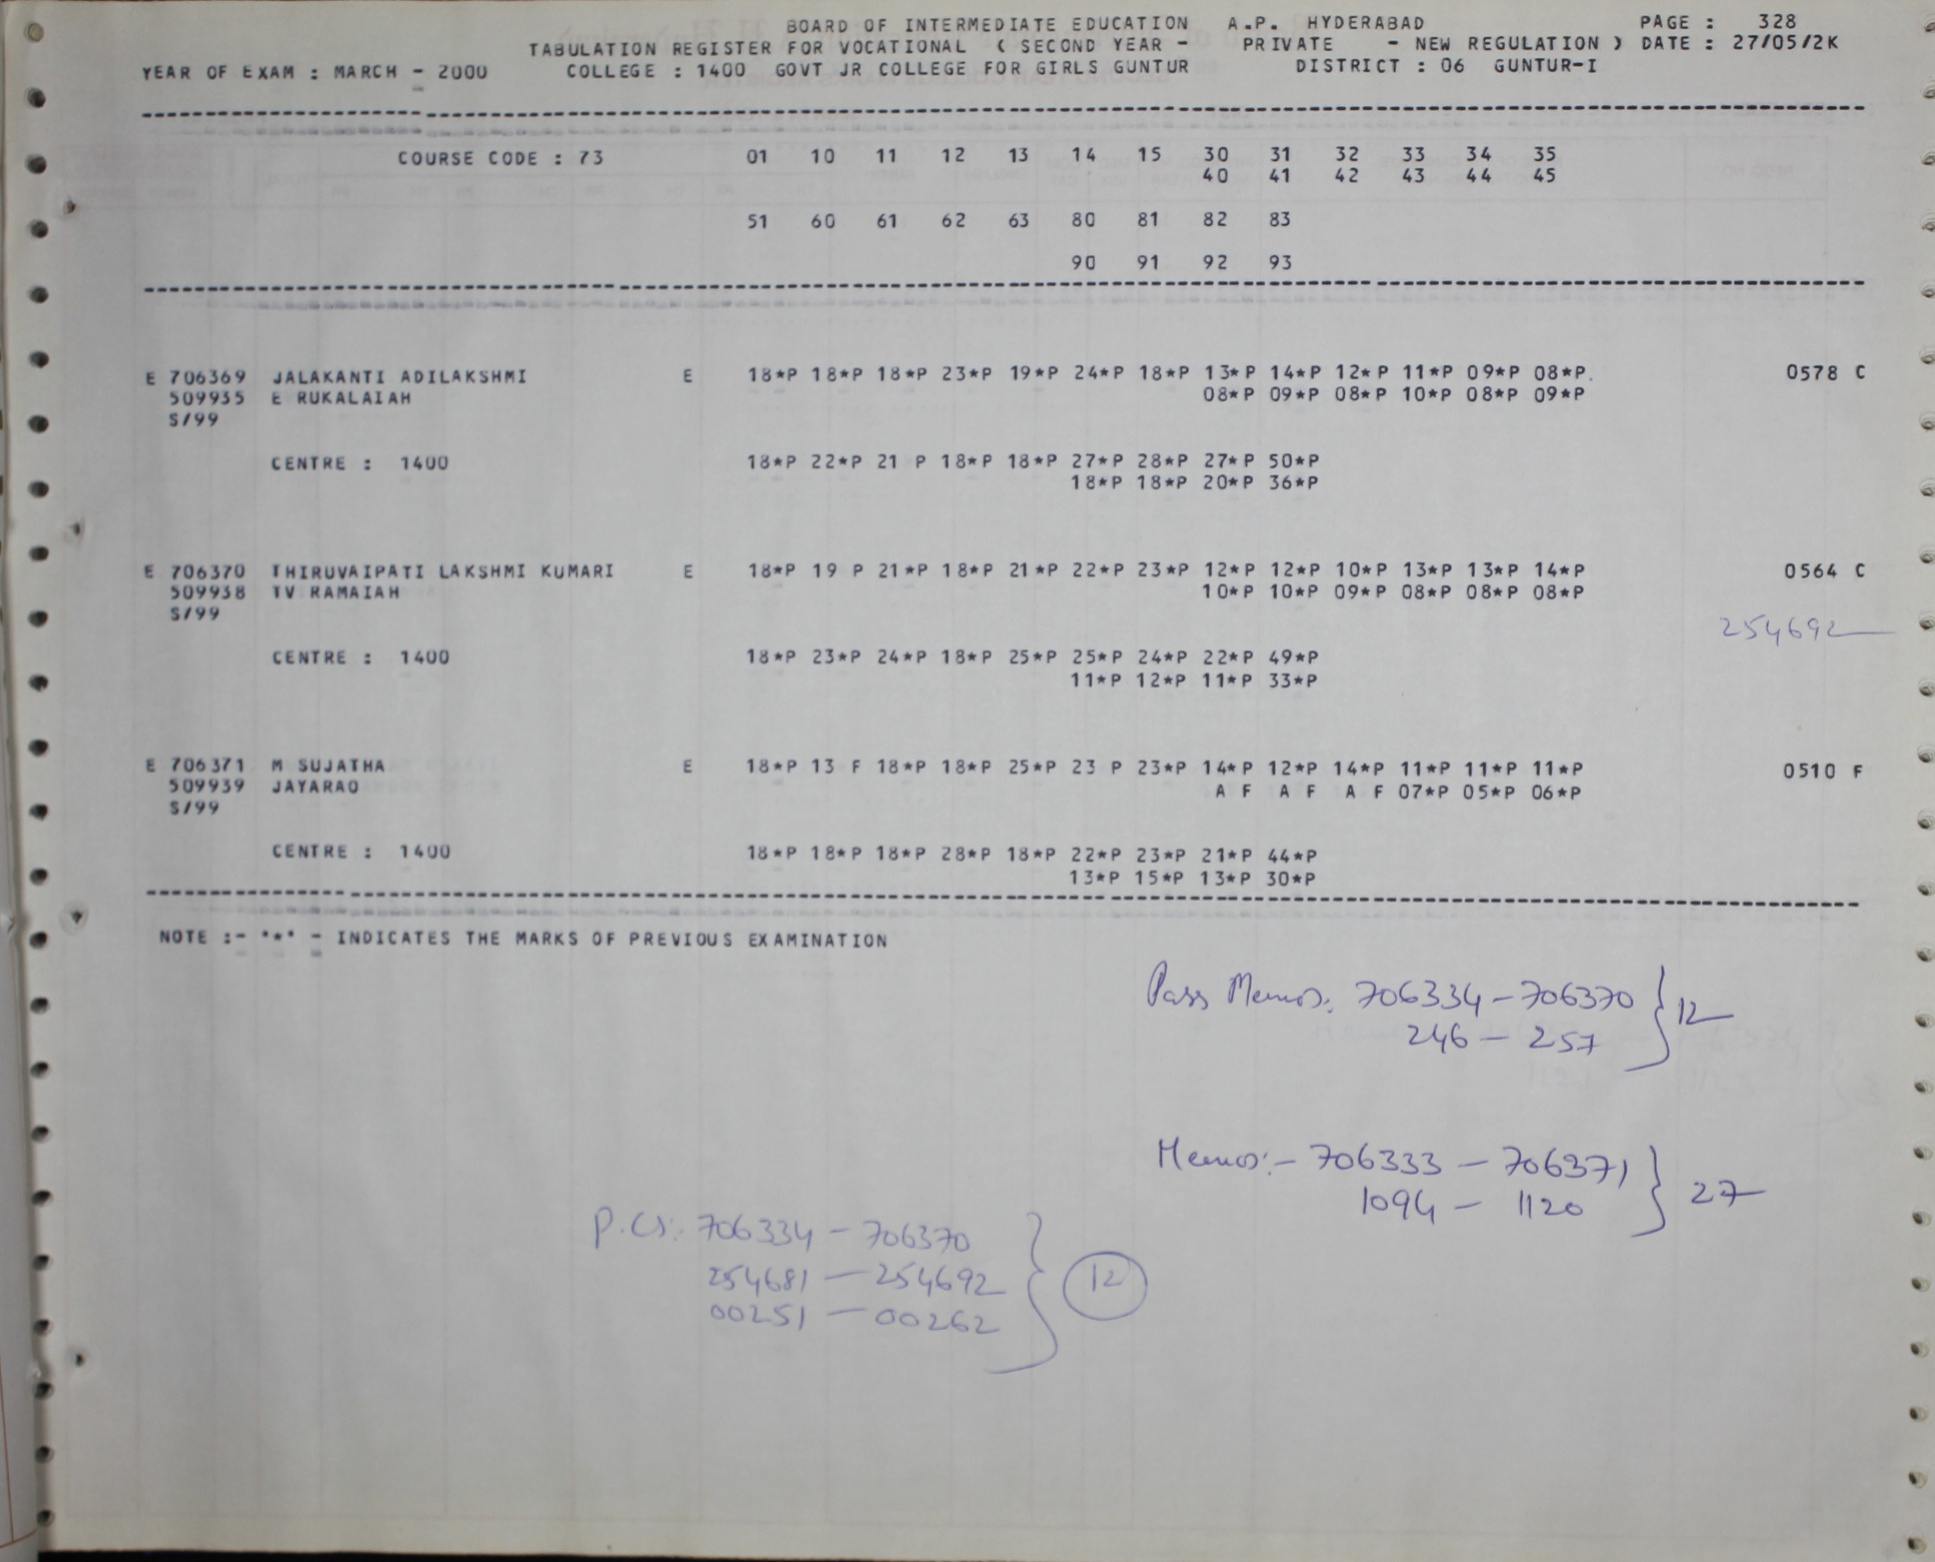 BOARD OF INTERMEDIATE EDUCATION A.P. HYDERABAD PAGE : 328
TABULATION REGISTER FOR VOCATIONAL ( SECOND YEAR - PRIVATE - NEW REGULATION ) DATE : 27/05/2K
YEAR OF EXAM : MARCH - 2000 COLLEGE : 1400 GOVT JR COLLEGE FOR GIRLS GUNTUR DISTRICT : 06 GUNTUR-I
COURSE CODE : 73 01 10 11 12 13 14 15 30 31 32 33 34 35
40 41 42 43 44 45
51 60 61 62 63 80 81 82 83
90 91 92 93
E 706369 JALAKANTI ADILAKSHMI E 18*P 18*P 18*P 23*P 19*P 24*P 18*P 13*P 14*P 12*P 11*P 09*P 08*P. 0578 C
509935 E RUKALAIAH 08*P 09*P 08*P 10*P 08*P 09*P
S/99
CENTRE : 1400 18*P 22*P 21 P 18*P 18*P 27*P 28*P 27*P 50*P
18*P 18*P 20*P 36*P
E 706370 THIRUVAIPATI LAKSHMI KUMARI E 18*P 19 P 21*P 18*P 21*P 22*P 23*P 12*P 12*P 10*P 13*P 13*P 14*P 0564 C
509938 TV RAMAIAH 10*P 10*P 09*P 08*P 08*P 08*P
S/99
254692
CENTRE : 1400 18*P 23*P 24*P 18*P 25*P 25*P 24*P 22*P 49*P
11*P 12*P 11*P 33*P
E 706371 M SUJATHA E 18*P 13 F 18*P 18*P 25*P 23 P 23*P 14*P 12*P 14*P 11*P 11*P 11*P 0510 F
509939 JAYARAO A F A F A F 07*P 05*P 06*P
S/99
CENTRE : 1400 18*P 18*P 18*P 28*P 18*P 22*P 23*P 21*P 44*P
13*P 15*P 13*P 30*P
NOTE :- '*' - INDICATES THE MARKS OF PREVIOUS EXAMINATION
Pass Memos: 706334 - 706370 } 12
246 - 257
Memos:- 706333 - 706371 } 27
1094 - 1120
P.Cs: 706334 - 706370
254681 - 254692 } 12
00251 - 00262